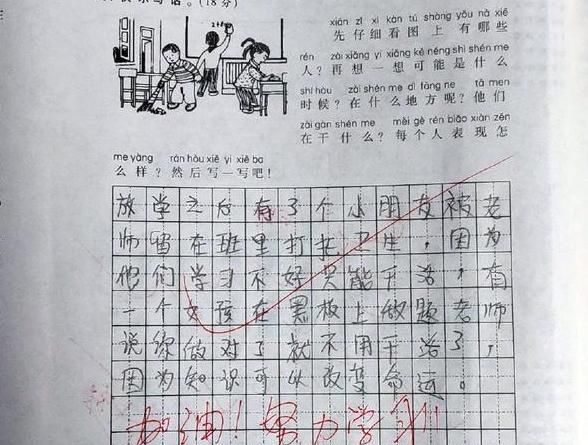 。(18分)
xiān zǐ xì kàn tú shàng yǒu nǎ xiē
先仔细看图上有哪些
rén zài xiǎng yì xiǎng kě néng shì shén me
人？再想一想可能是什么
shí hòu zài shén me dì fāng ne tā men
时候？在什么地方呢？他们
zài gàn shén me měi gè rén biǎo xiàn zěn
在干什么？每个人表现怎
me yàng rán hòu xiě yi xiě ba
么样？然后写一写吧！
放学之后有了个小朋友被老
师留在班里打扫卫生，因为
他们学习不好只能干活，有
一个女孩在黑板上做题老师
说你做对了就不用干活了，
因为知识可以改变命运。
加油！努力学习!!!